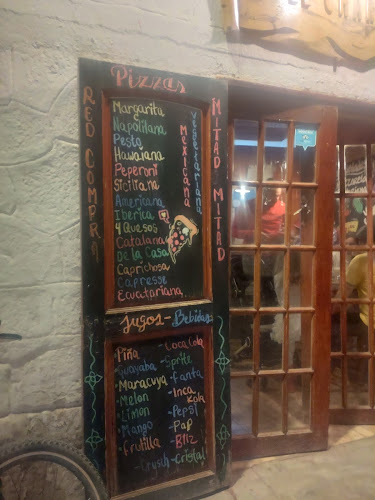 Pizzas
RED COMPRA
MITAD MITAD
Margarita
Napolitana
Pesto
Hawaiana
Peperoni
Siciliana
Americana
Iberica
4 Quesos
Catalana
De la Casa
Caprichosa
Capresse
Ecuatariana
MEXICANA
VEGETARIANA
Jugos - Bebidas
Piña
Guayaba
Maracuya
Melon
Limon
Mango
Frutilla
- Coca Cola
- Sprite
- Fanta
- Inca Kola
- Pepsi
- Pap
- Bliz
- Crush - Cristal